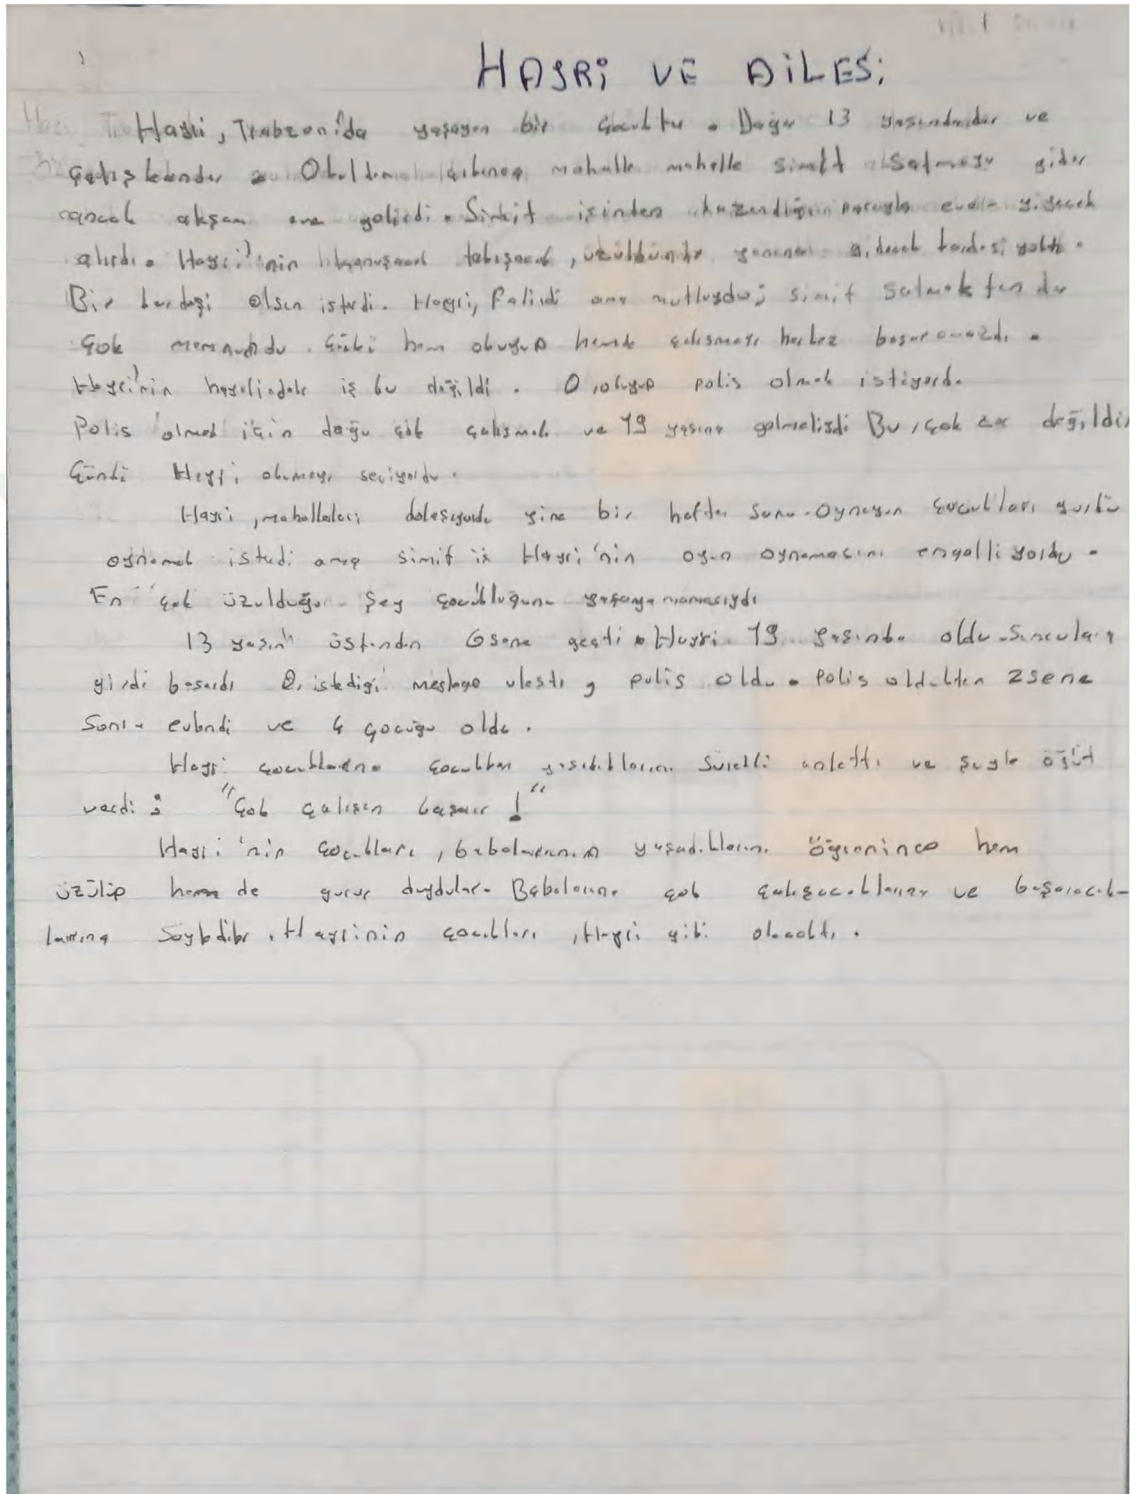 HAYRi VE AiLESi
Hayri, Trabzon'da yaşayan bir çocuktu. Daha 13 yaşındadır ve
çalışkandır. Okuldan çıkınca mahalle mahalle simit satmaya gider
ancak akşam eve gelirdi. Simit işinden kazandığı parayla eve yiyecek
alırdı. Hayri'nin konuşacak, üzüldüünde yanına gidecek kardeşi yoktu.
Bir kardeşi olsun isterdi. Hayri, ama mutluydu; simit satmaktan da
çok memnundu. Çünkü hem okuyup hemde çalışmayı herkez başaramazdı.
Hayri'nin hayelindeki iş bu değildi. O, okuyup polis olmak istiyordu.
Polis olmak için çok çalışmak ve 19 yaşına gelmeliydi Bu, çok zor değildi,
Çünkü Hayri okumayı seviyordu.
Hayri, mahalleleri dolaşıyordu yine bir hafta sonu. Oynayan çocukları gördü
oynamak istedi ama simit iş Hayri'nin oyun oynamasını engelliyordu.
En çok üzulduğu şey çocukluğunu yaşayamamasıydı
13 yaşın üstünden 6 sene geçti. Hayri 19 yaşında oldu. Sınavlara
girdi başardı O, istediği mesleğe ulaştı, polis oldu. Polis olduktan 2 sene
sonra evlendi ve 4 çocuğu oldu.
Hayri çocuklarına çocukken yaşadıklarını sürekli anlattı ve şöyle öğüt
verdi: "Çok çalışan başarır!"
Hayri'nin çocukları, babalarının yaşadıklarını öğrenince hem
üzülüp hem de gurur duydular. Babalarına çok çalışacaklarını ve başaracak-
larına söylediler. Hayrinin çocukları, Hayri gibi olacaktı.